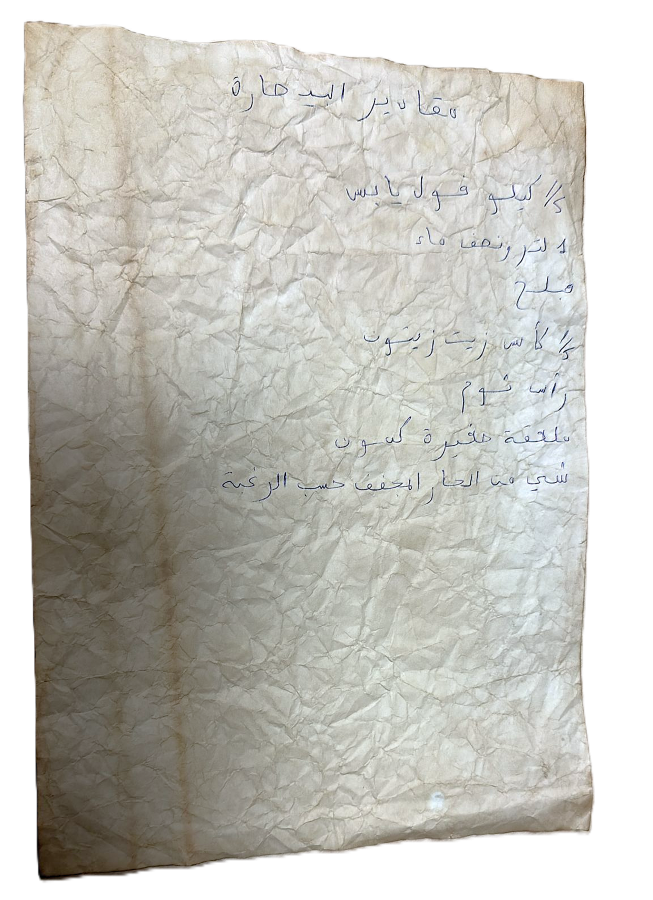 مقادير البيصارة
1/2 كيلو فول يابس
1 لتر ونصف ماء
ملح
1/2 كأس زيت زيتون
رأس ثوم
ملعقة صغيرة كمون
شي من الحار المجفف حسب الرغبة